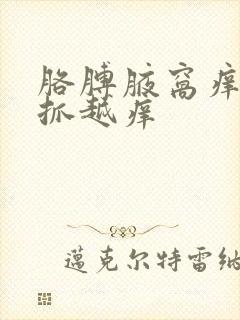 胳膊腋窝痒
抓越痒
邁克尔特雷纳